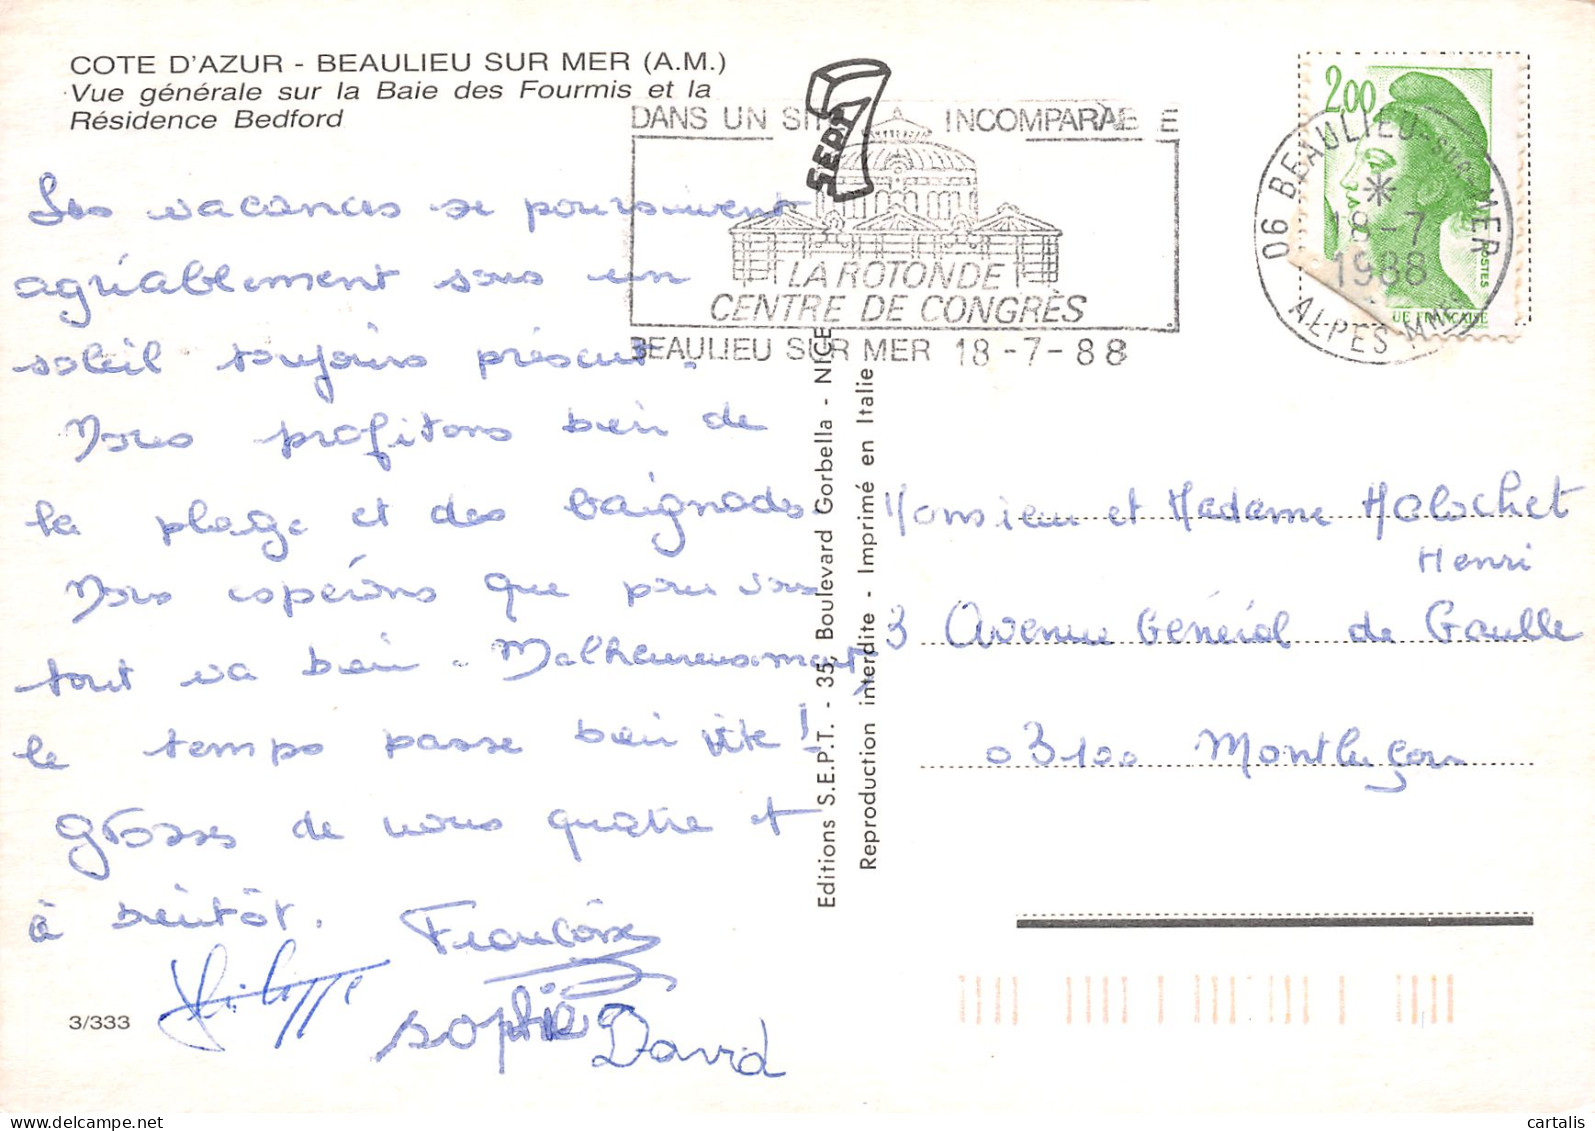 COTE D'AZUR - BEAULIEU SUR MER (A.M.)
Vue générale sur la Baie des Fourmis et la
Résidence Bedford
Les vacances se poursuivent
agréablement sous un
soleil toujours présent.
Nous profitons bien de
la plage et des baignades
Nous espérons que pour vous
tout va bien. Malheureusement,
le temps passe bien vite !
grosses de nous quatre et
à bientôt. Françoise
Philippe
Sophie
David
3/333
SEPT
DANS UN SITE INCOMPARABLE
LA ROTONDE
CENTRE DE CONGRÈS
BEAULIEU SUR MER 18-7-88
Editions S.E.P.T. - 35, Boulevard Gorbella - NICE
Reproduction interdite - Imprimé en Italie
2,00
POSTES
UE FRANÇAISE
06 BEAULIEU-SUR-MER
18-7
1988
ALPES MMES
Monsieur et Madame Malochet
Henri
3 Avenue Général de Gaulle
03100 Montluçon
cartalis